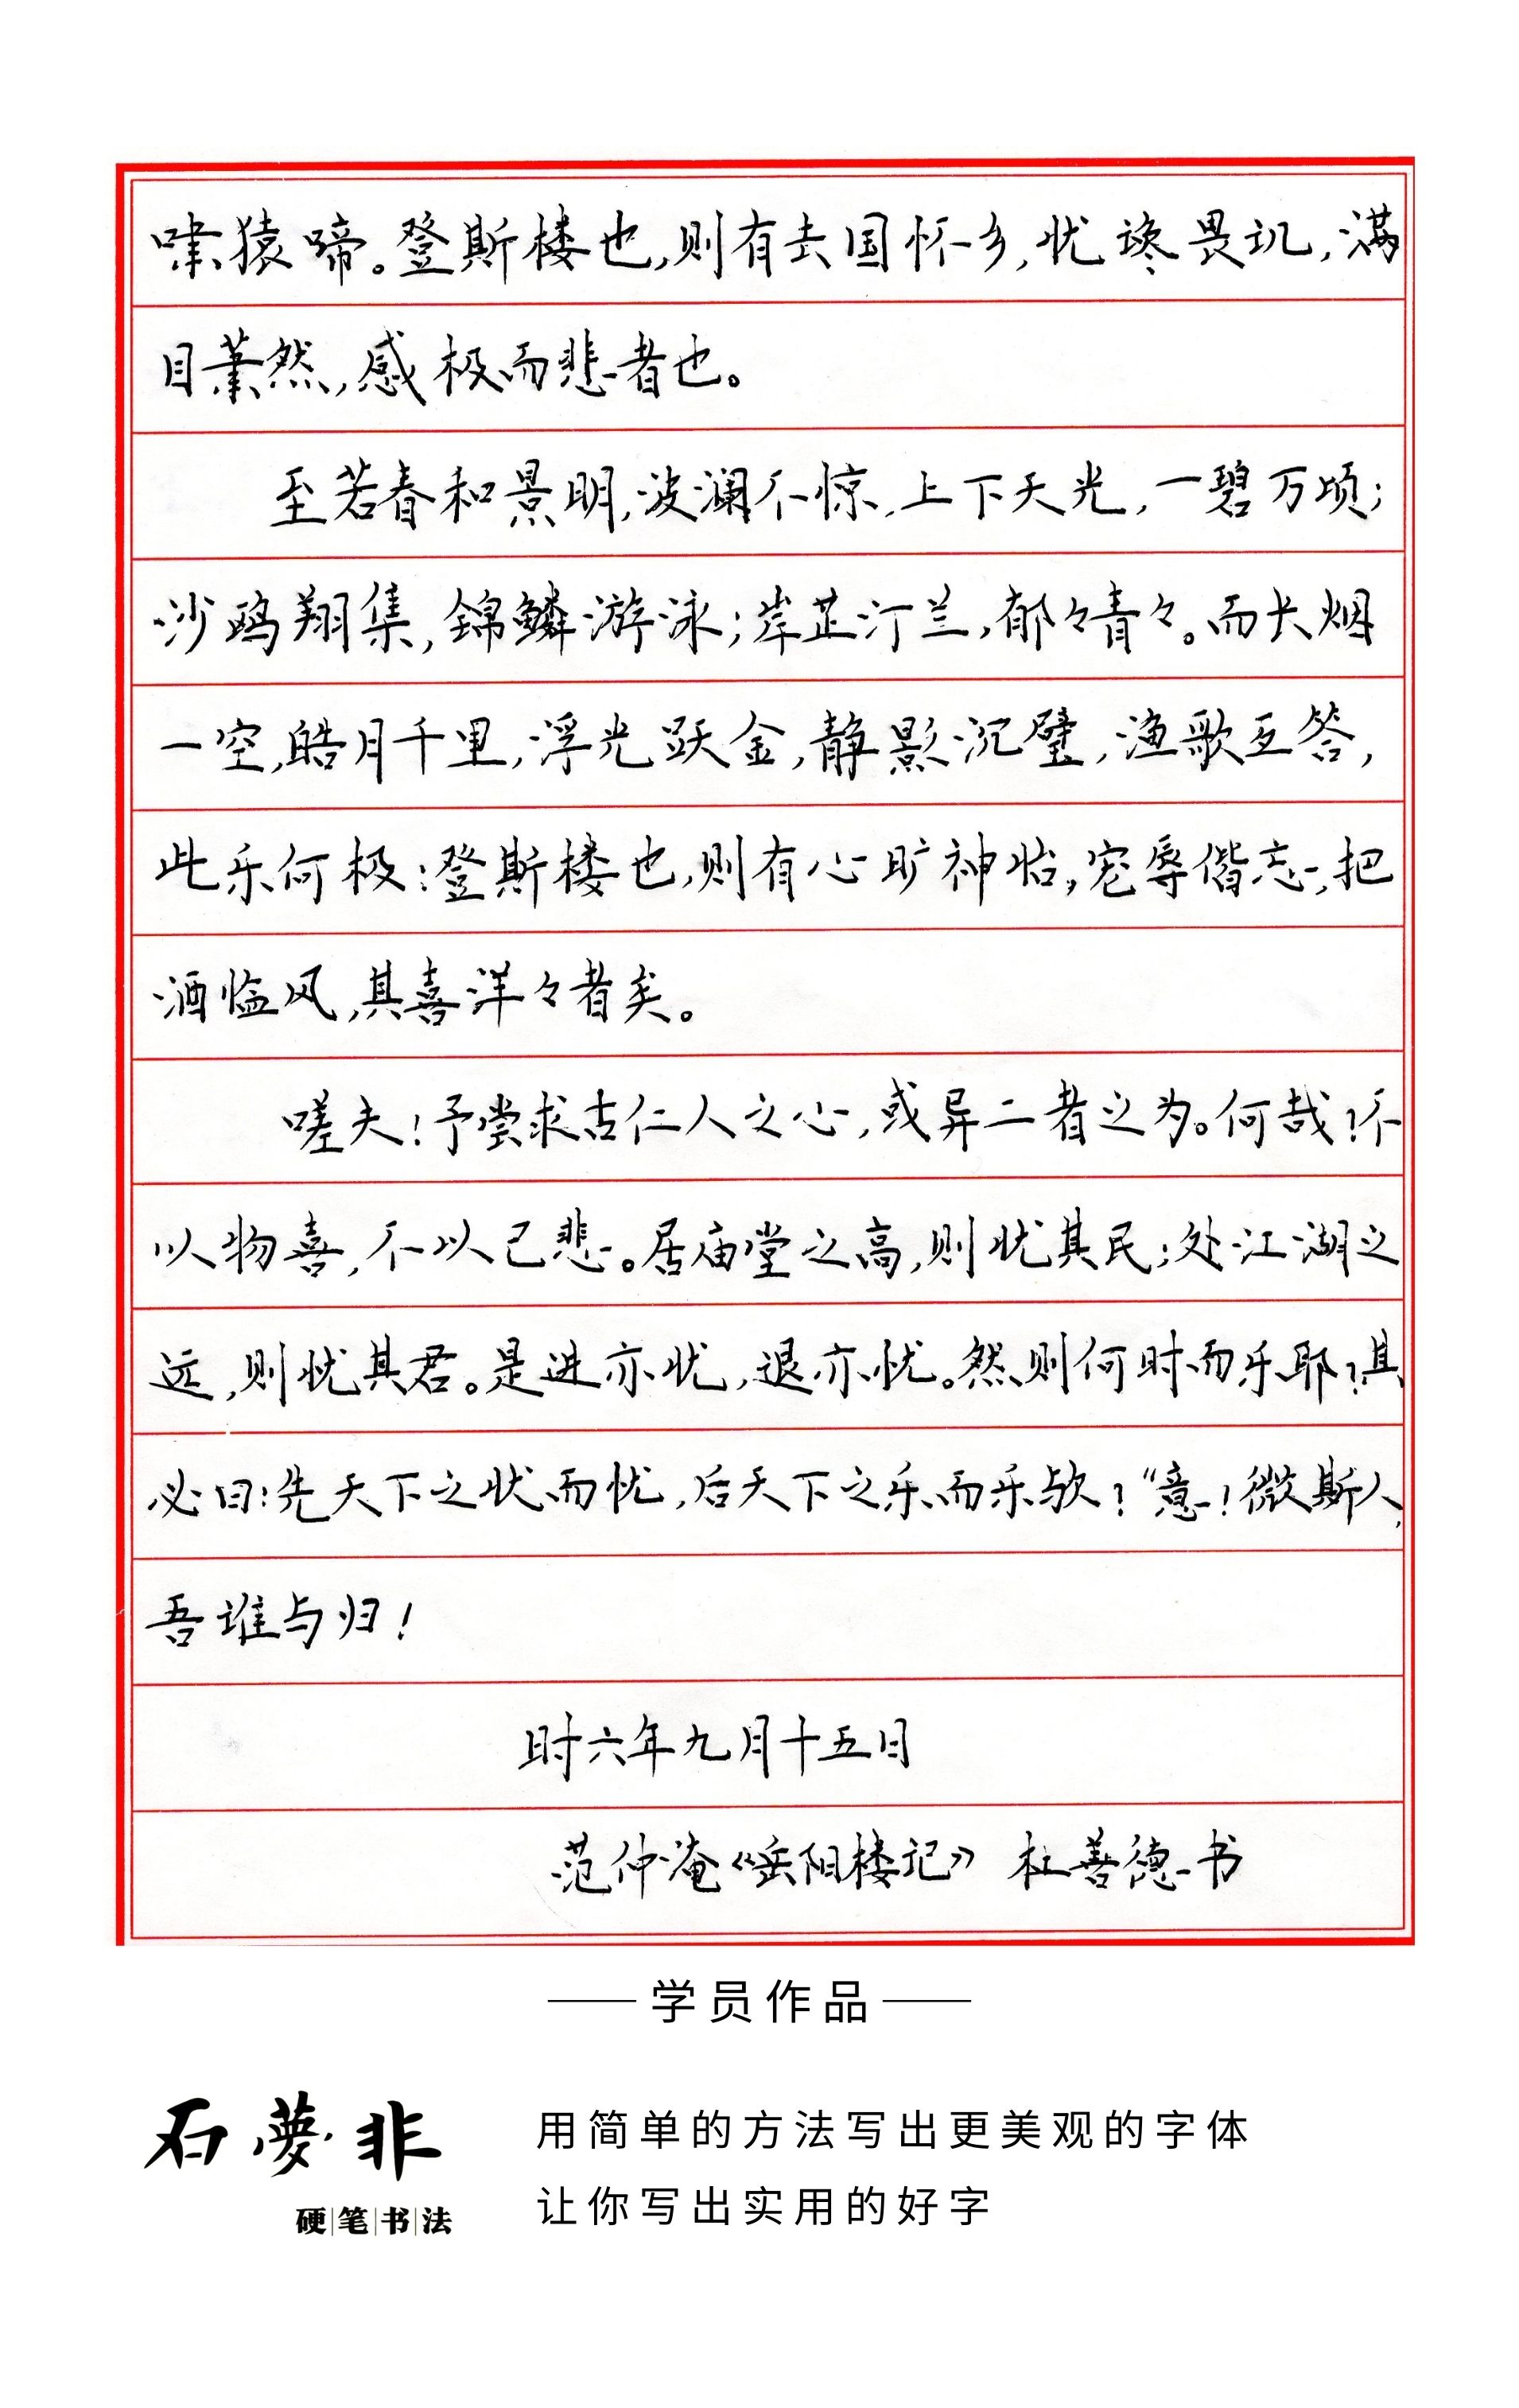 啸猿啼。登斯楼也,则有去国怀乡,忧谗畏讥,满
目萧然,感极而悲者也。
至若春和景明,波澜不惊,上下天光,一碧万顷;
沙鸥翔集,锦鳞游泳;岸芷汀兰,郁々青々。而长烟
一空,皓月千里,浮光跃金,静影沉璧,渔歌互答,
此乐何极!登斯楼也,则有心旷神怡,宠辱偕忘,把
酒临风,其喜洋々者矣。
嗟夫!予尝求古仁人之心,或异二者之为。何哉?不
以物喜,不以己悲。居庙堂之高,则忧其民;处江湖之
远,则忧其君。是进亦忧,退亦忧。然则何时而乐耶?其
必曰:先天下之忧而忧,后天下之乐而乐欤?"噫!微斯人,
吾谁与归!
时六年九月十五日
范仲淹《岳阳楼记》 杜善德书
学员作品
石夢非
硬笔书法
用简单的方法写出更美观的字体
让你写出实用的好字